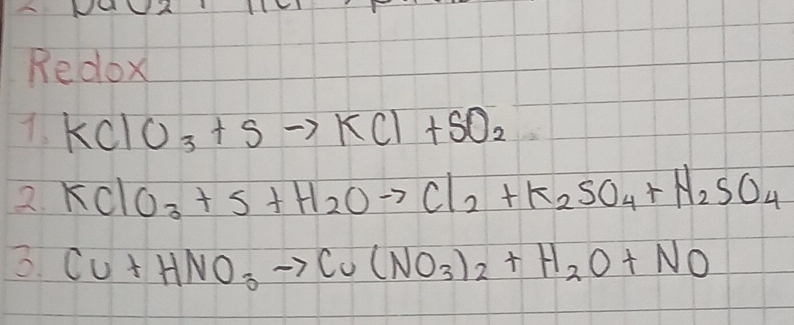 Redox
1. KClO₃ + S → KCl + SO₂
2. KClO₃ + S + H₂O → Cl₂ + K₂SO₄ + H₂SO₄
3. Cu + HNO₃ → Cu(NO₃)₂ + H₂O + NO